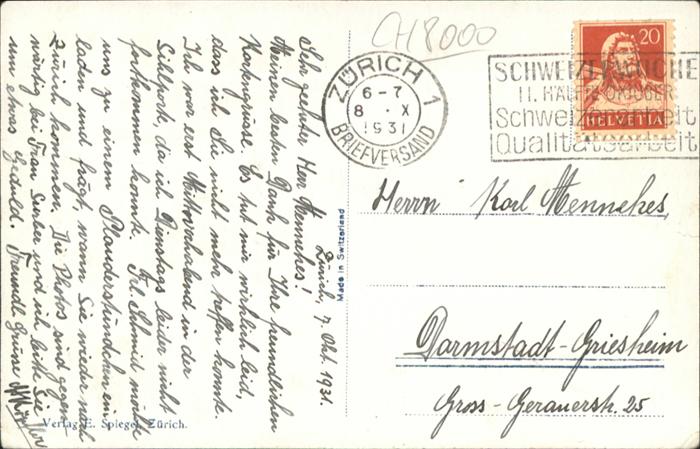 CH8000
ZÜRICH 1
6-7
8 . X
1931
BRIEFVERSAND
SCHWEIZERWOCHE
II. HÄLFTE OKTOBER
Schweizerarbeit
Qualitätsarbeit
20
HELVETIA
Zürich, 7. Okt. 1931.
Sehr geehrter Herr Mennekes!
Meinen besten Dank für Ihre freundlichen
Kartengrüsse. Es tut mir wirklich leid,
dass ich Sie nicht mehr treffen konnte.
Ich war erst Mittwochabend in der
Sillport, da ich Dienstags leider nicht
fortkommen konnte. Frl. Schmid möchte
uns zu einem Plauderstündchen ein-
laden und frägt, wann Sie wieder nach
Zürich kommen. Die Photos sind gegen-
wärtig bei Frau Surber und ich bitte Sie
um etwas Geduld. Freundl. Grüsse
Made in Switzerland
Verlag E. Spiegel, Zürich.
Herrn Karl Mennekes,
Darmstadt-Griesheim
Gross-Gerauerstr. 25